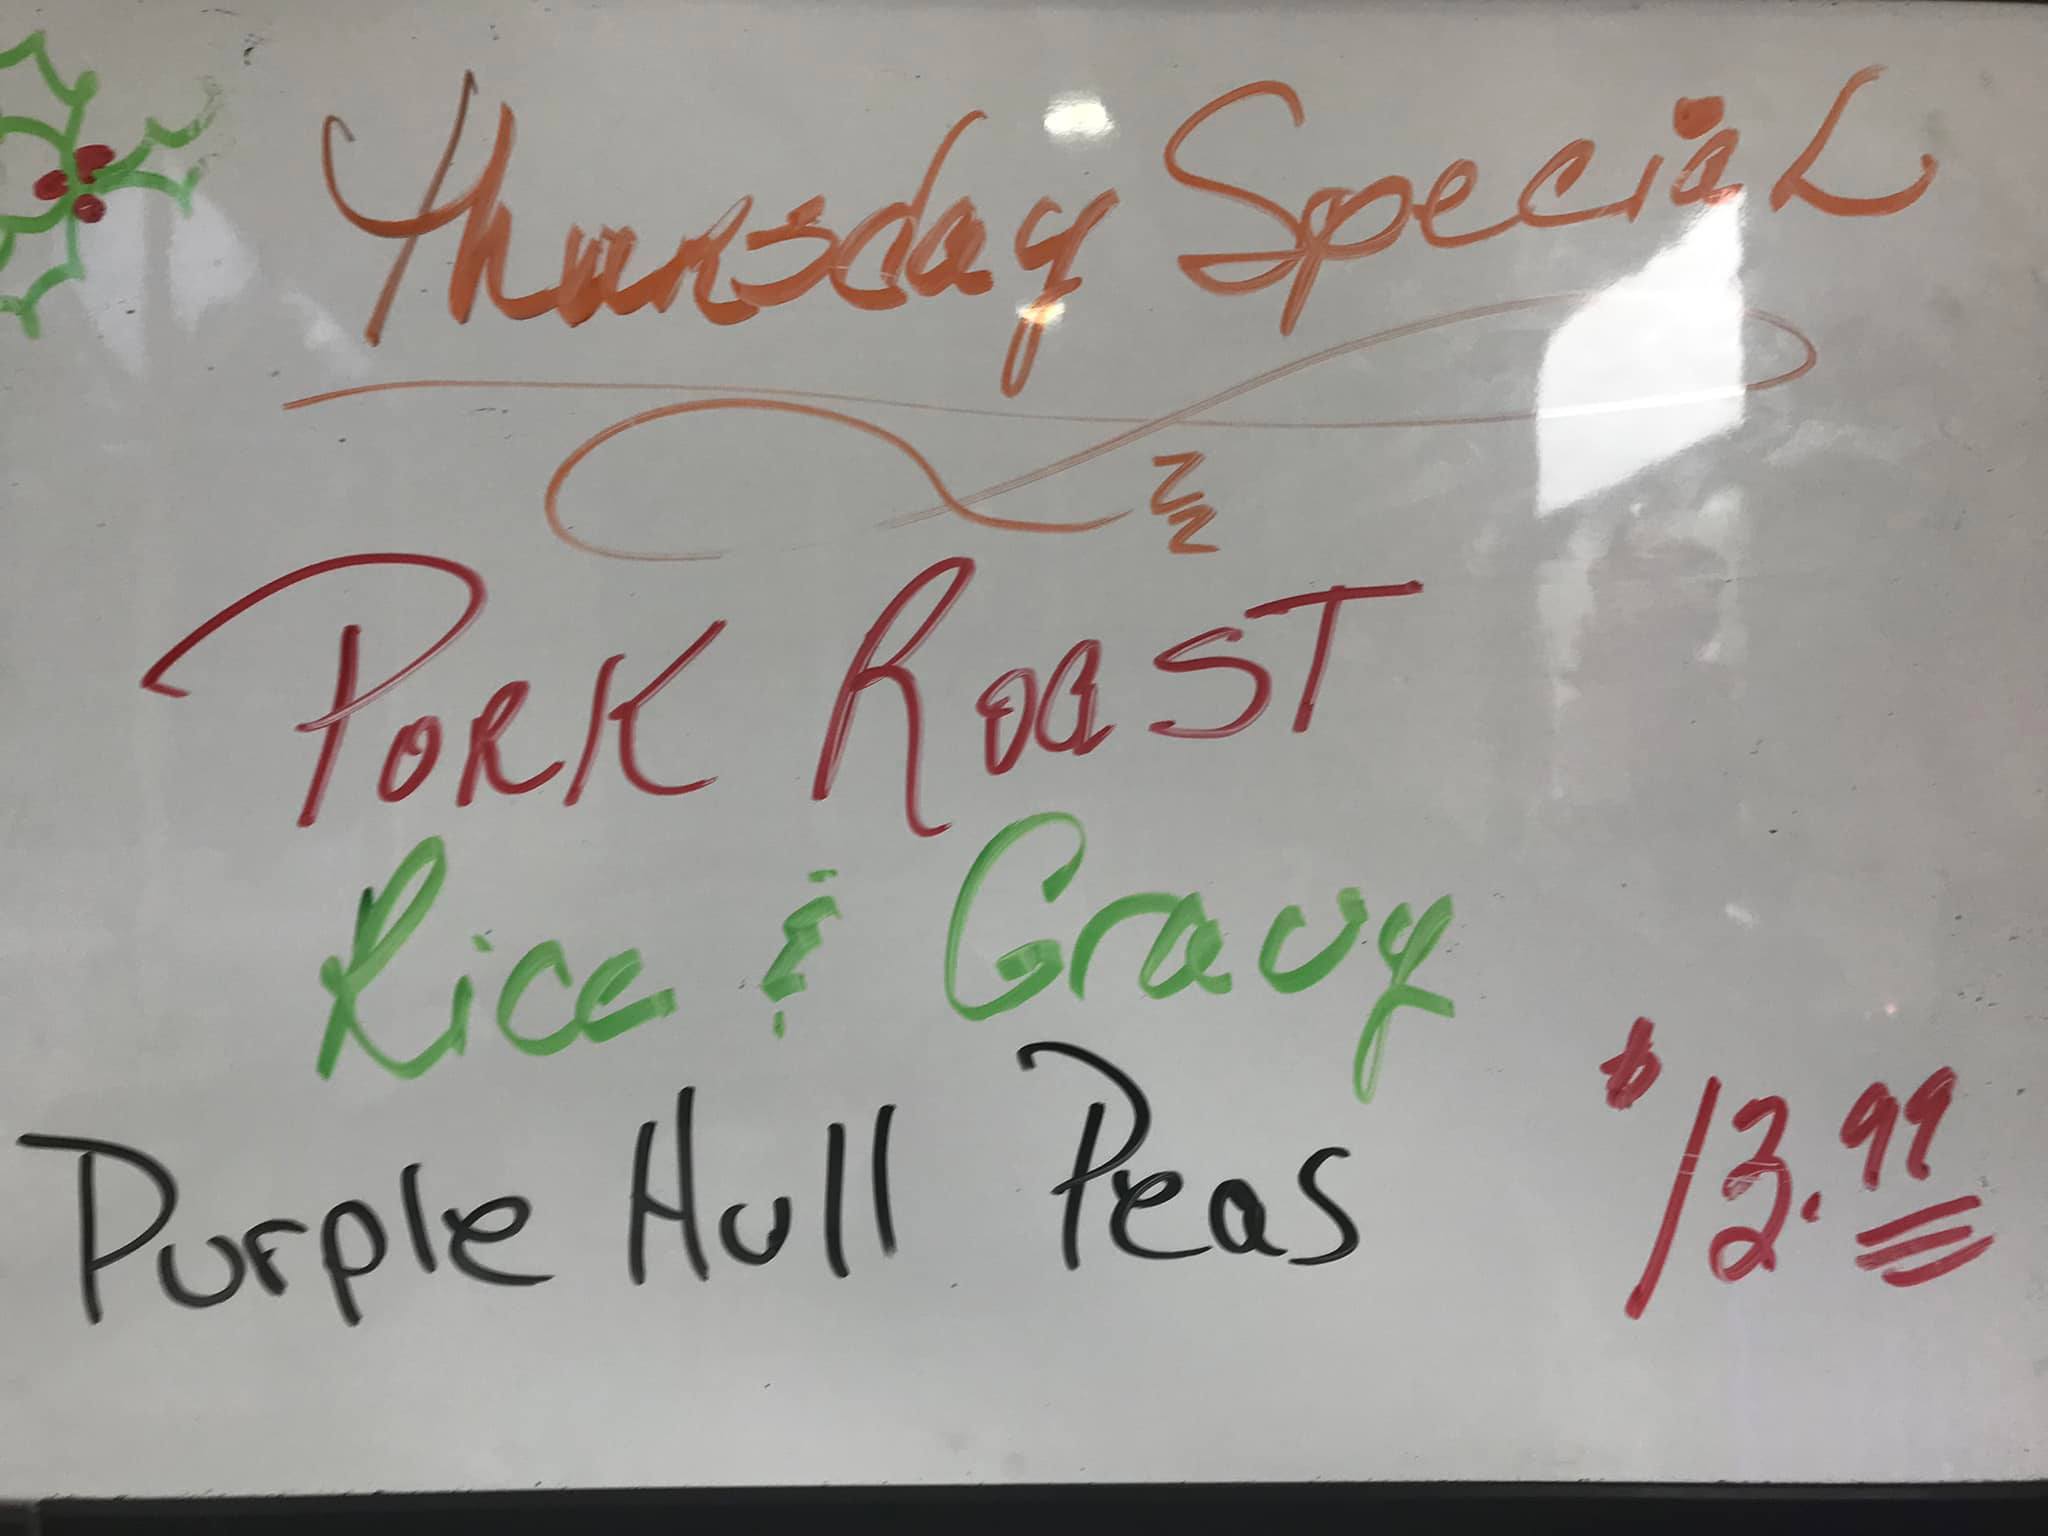 Thursday Special
Pork Roast
Rice & Gravy
Purple Hull Peas
$13.99